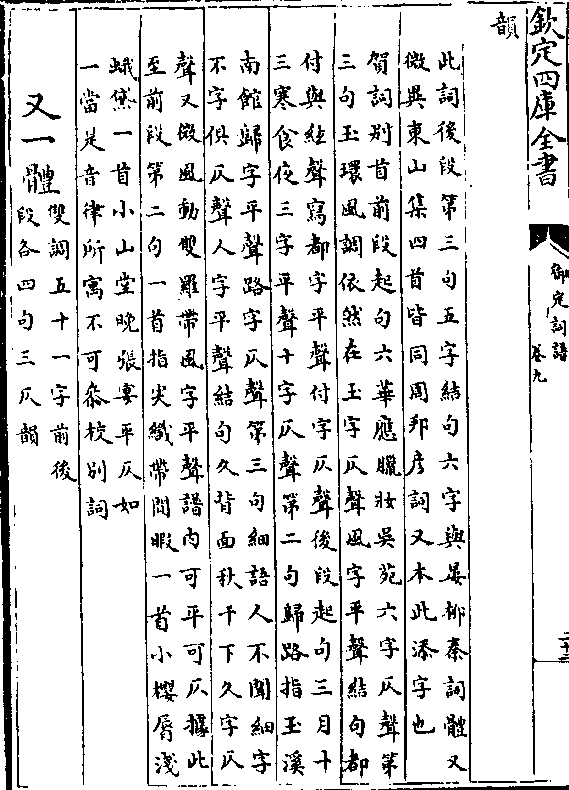 欽定四庫全書
御定詞譜
卷九
二十三
韻
此詞後段第三句五字結句六字與晏柳秦詞體又
微異東山集四首皆同周邦彥詞又本此添字也
賀詞别首前段起句六華應臘妝吳苑六字仄聲第
三句玉環風調依然在玉字仄聲風字平聲結句都
付與絃聲寫都字平聲付字仄聲後段起句三月十
三寒食夜三字平聲十字仄聲第二句歸路指玉溪
南館歸字平聲路字仄聲第三句細語人不聞細字
不字俱仄聲人字平聲結句久背面秋千下久字仄
聲又微風動雙羅帶風字平聲譜内可平可仄據此
至前段第二句一首指尖纖帶閒暇一首小櫻脣淺
蛾黛一首小山堂晚張宴平仄如
一當是音律所寓不可叅校别詞
又一體
雙調五十一字前後
段各四句三仄韻